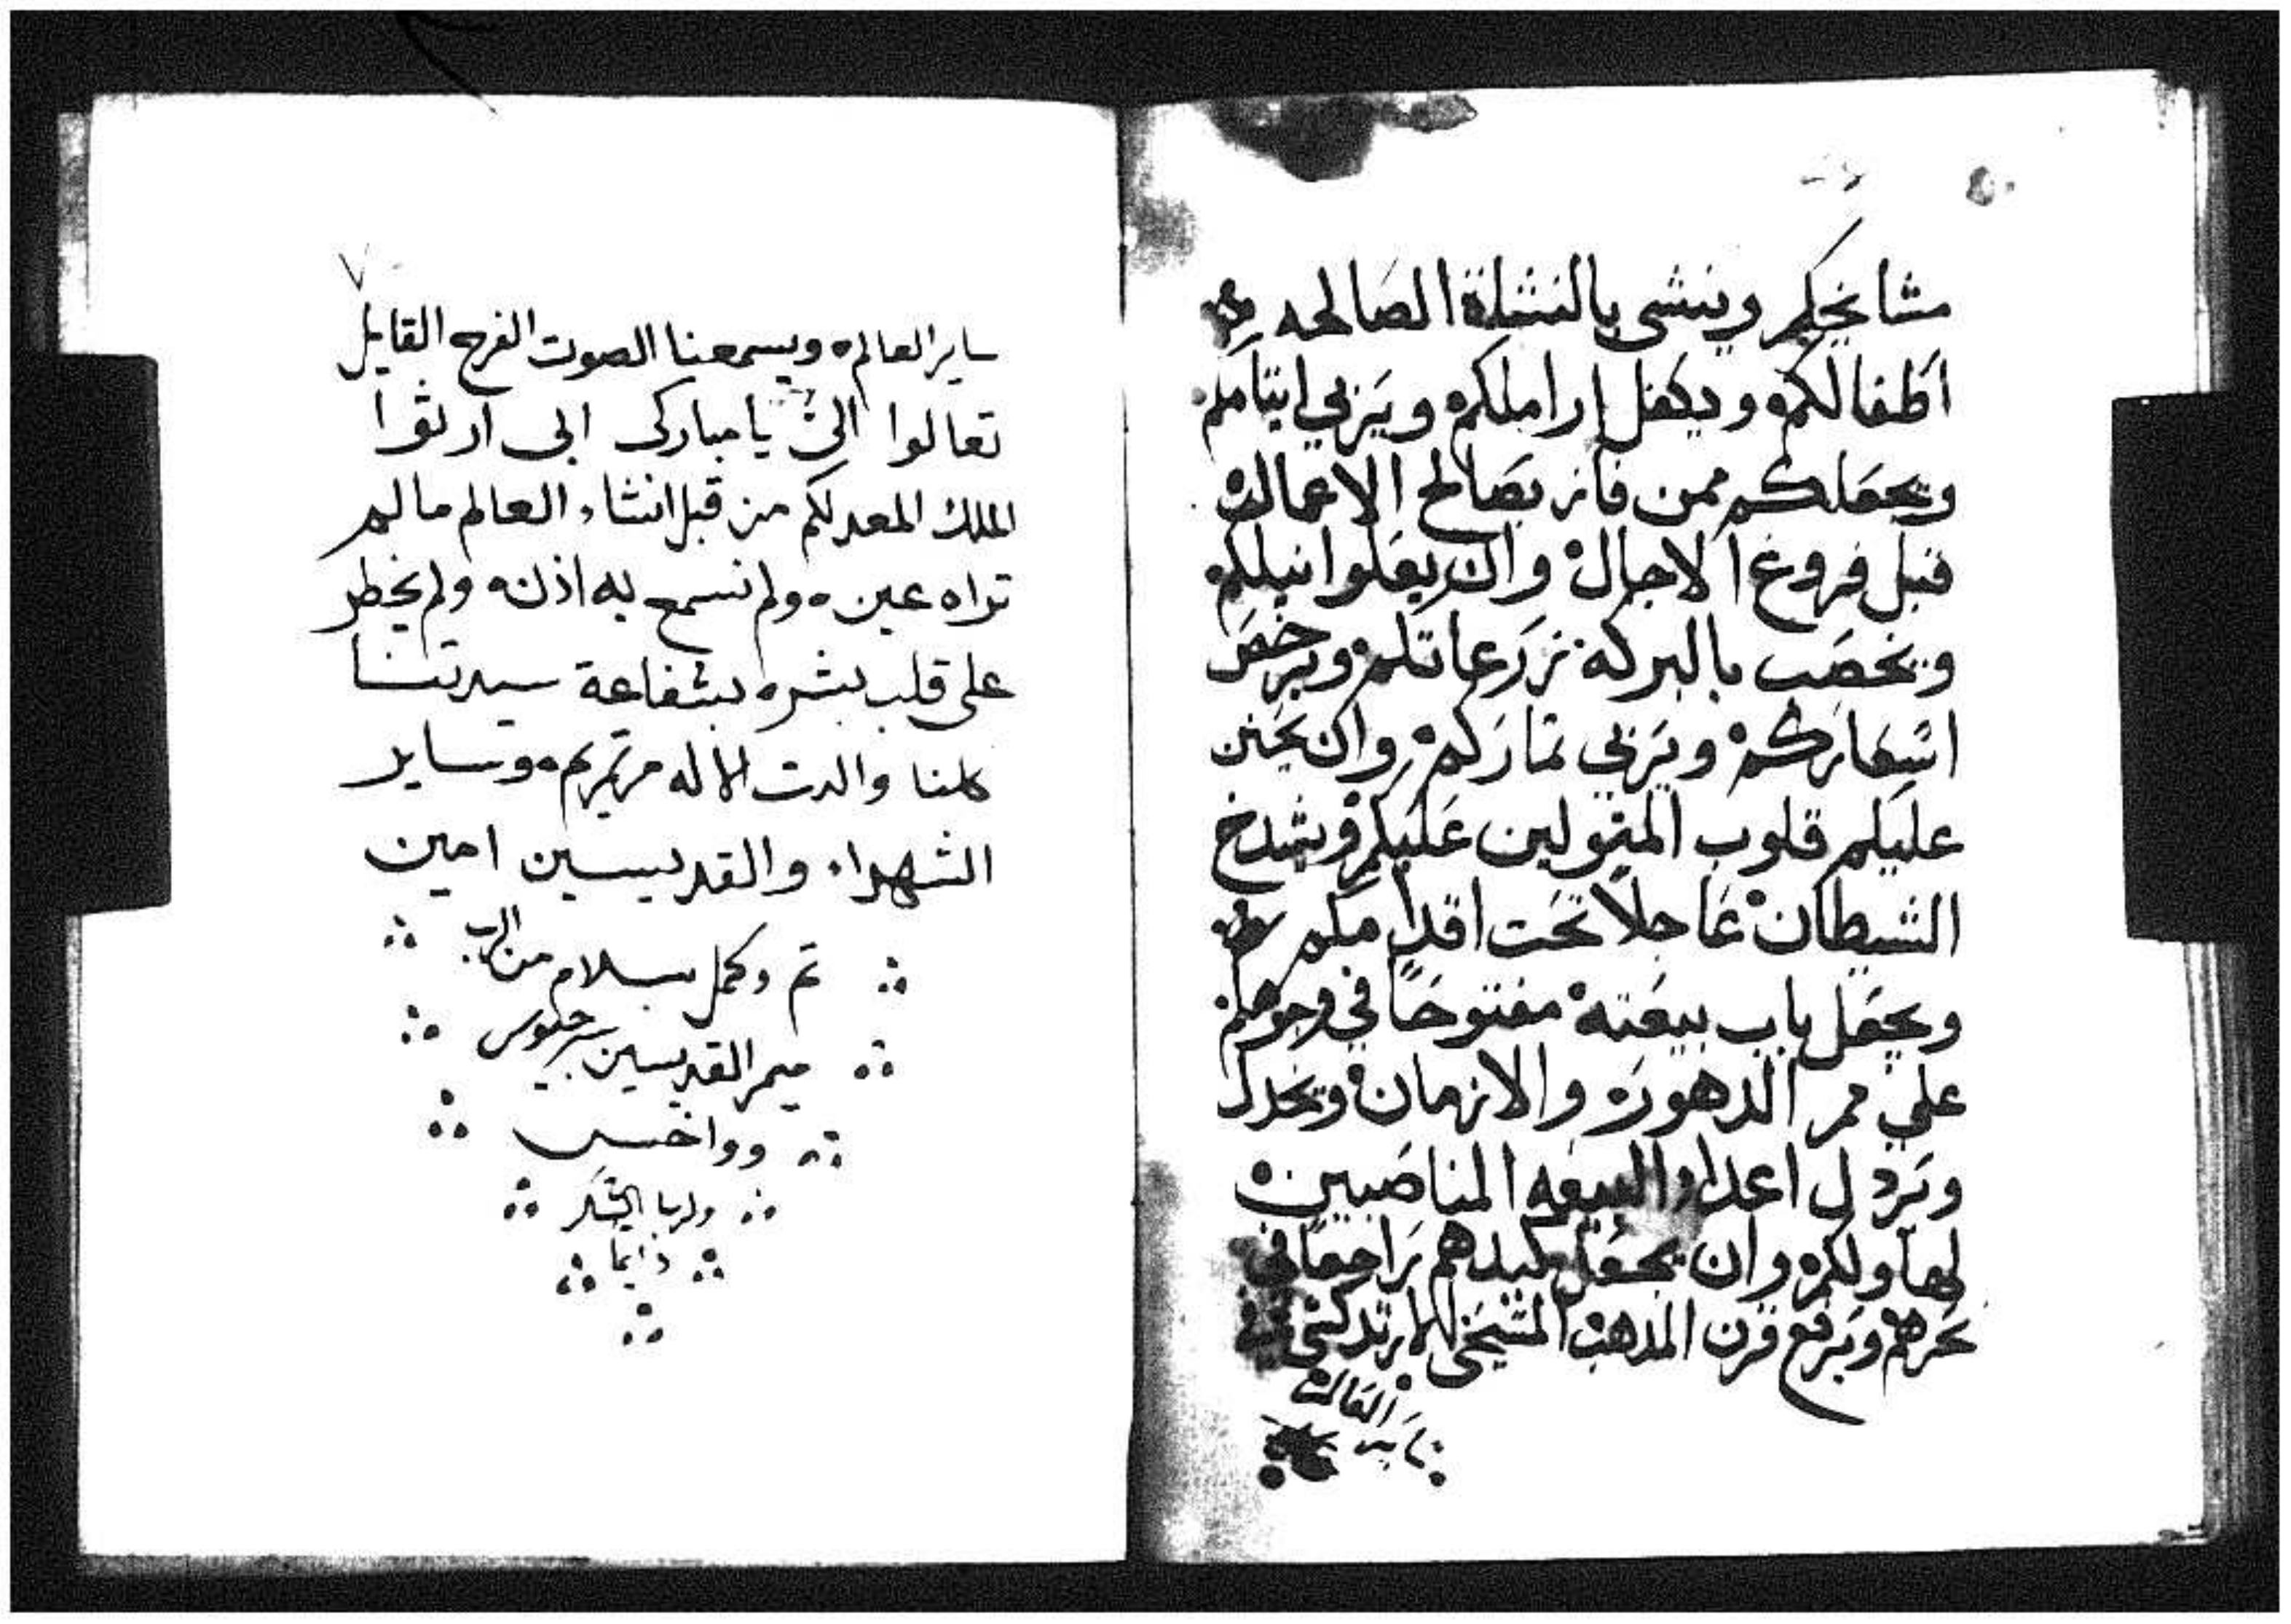 مشايخكم وينشى بالنشاة الصالحه
اطفالكم ويكفل اراملكم ويربي ايتامكم
ويجعلكم ممن فاز بصالح الاعمال
قبل فروغ الاجال وان
ويخصب بالبركه زرعاتكم ويرخص
اسعاركم ويزكي ثماركم وان يحنن
عليكم قلوب المتولين عليكم ويشدخ
الشيطان عاجلاً تحت اقدامكم
ويجعل باب بيعته مفتوحاً في وجوهكم
علي ممر الدهور والازمان ويخدل
ويردل اعداء البيعه المناصبين
لها ولكم وان يجعل كيدهم راجعاً في
نحرهم ويرفع قرن المدهب المسيحى الارتدكسى في
ساير العالم
ساير العالم ويسمعنا الصوت الفرح القايل
تعالوا الىّ يا مباركى ابى ارثوا
الملك المعد لكم من قبل انشاء العالم ما لم
تراه عين ولم تسمع به اذن ولم يخطر
على قلب بشر بشفاعة سيدتنا
كلنا والدت الاله مرتمريم وساير
الشهداء والقديسين امين
تم وكمل بسلام من الرب
ميمر القديسين سرجيوس
وواخس
ولربنا الشكر
دايما